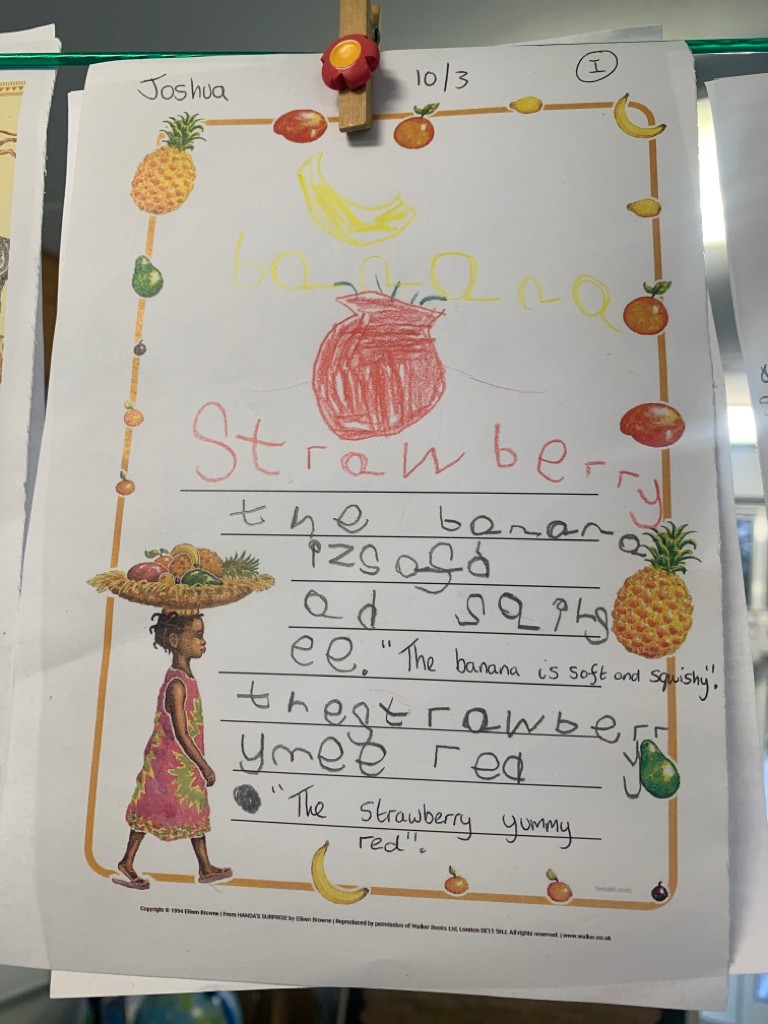 Joshua 10/3 I
banana
Strawberry
the banana
izsofd
ad sqihg
ee. "The banana is soft and squishy".
thestrawberry
ymee red
"The strawberry yummy
red".
twinkl.com
Copyright © 1994 Eileen Browne | From HANDA'S SURPRISE by Eileen Browne | Reproduced by permission of Walker Books Ltd, London SE11 5HJ. All rights reserved. | www.walker.co.uk